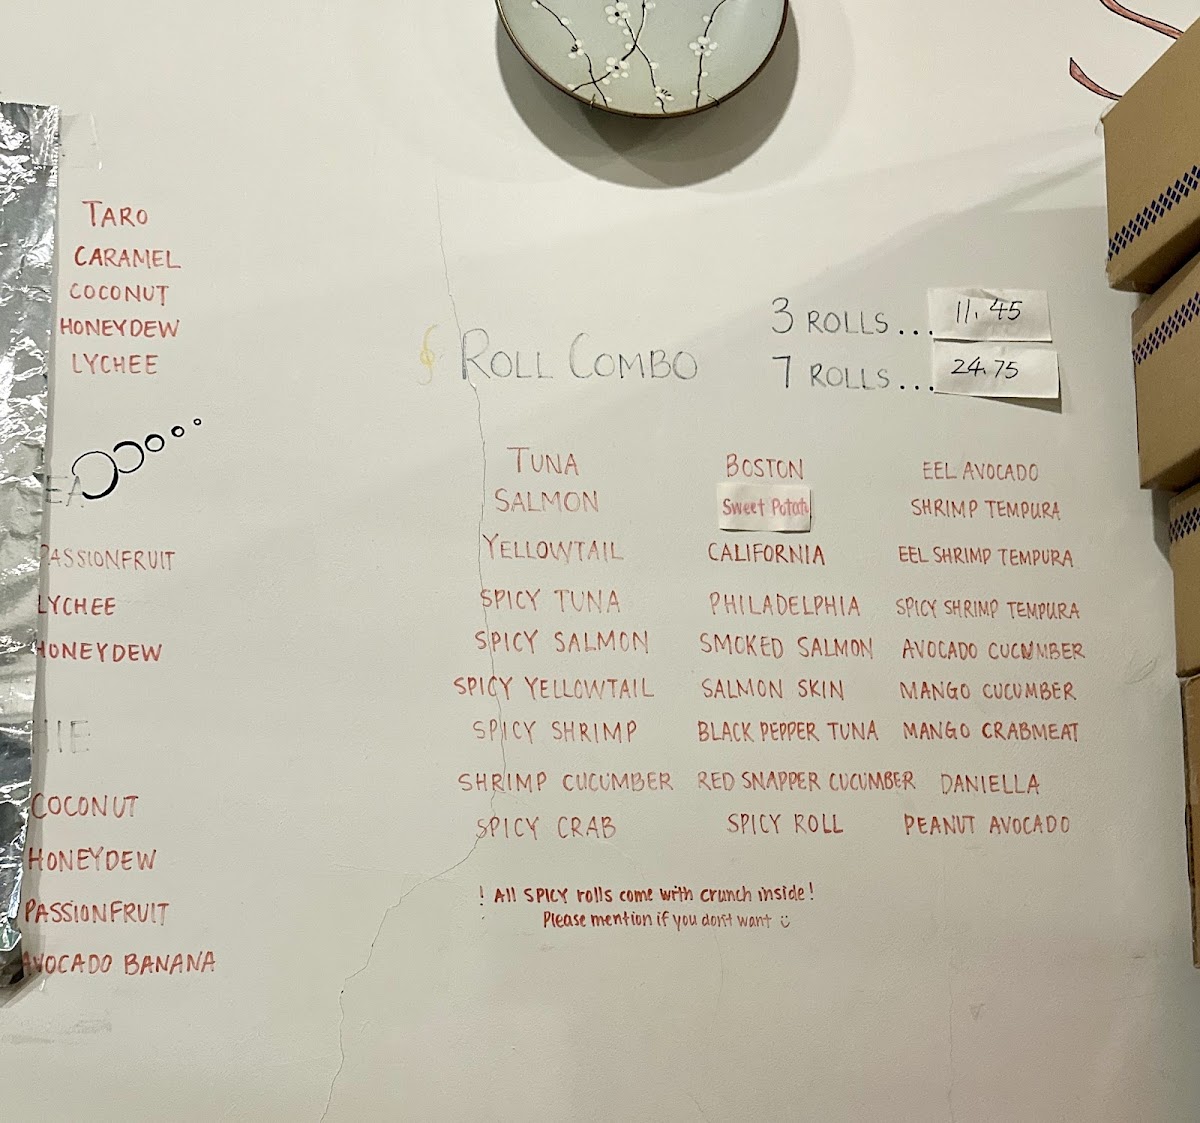 TARO
CARAMEL
COCONUT
HONEYDEW
LYCHEE
PASSIONFRUIT
LYCHEE
HONEYDEW
COCONUT
HONEYDEW
PASSIONFRUIT
AVOCADO BANANA
ROLL COMBO
3 ROLLS... 11.45
7 ROLLS... 24.75
TUNA BOSTON EEL AVOCADO
SALMON Sweet Potato SHRIMP TEMPURA
YELLOWTAIL CALIFORNIA EEL SHRIMP TEMPURA
SPICY TUNA PHILADELPHIA SPICY SHRIMP TEMPURA
SPICY SALMON SMOKED SALMON AVOCADO CUCUMBER
SPICY YELLOWTAIL SALMON SKIN MANGO CUCUMBER
SPICY SHRIMP BLACK PEPPER TUNA MANGO CRABMEAT
SHRIMP CUCUMBER RED SNAPPER CUCUMBER DANIELLA
SPICY CRAB SPICY ROLL PEANUT AVOCADO
! All SPICY rolls come with crunch inside!
Please mention if you don't want